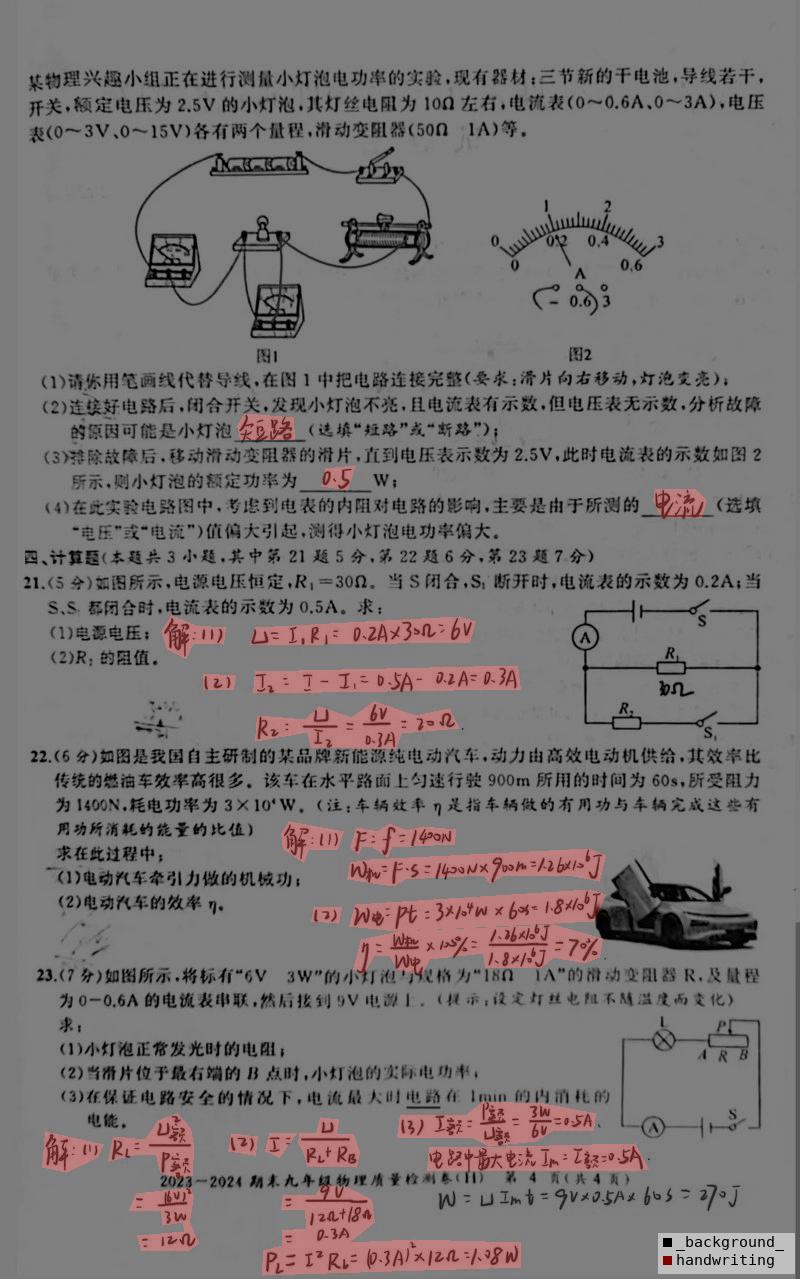 某物理兴趣小组正在进行测量小灯泡电功率的实验,现有器材:三节新的干电池,导线若干,
开关,额定电压为 2.5V 的小灯泡,其灯丝电阻为 10Ω 左右,电流表(0～0.6A、0～3A),电压
表(0～3V、0～15V)各有两个量程,滑动变阻器(50Ω 1A)等。
0 1 2 3
0 0.2 0.4 0.6
A
− 0.6 3
图1 图2
(1)请你用笔画线代替导线,在图 1 中把电路连接完整(要求:滑片向右移动,灯泡变亮);
(2)连接好电路后,闭合开关,发现小灯泡不亮,且电流表有示数,但电压表无示数,分析故障
的原因可能是小灯泡 短路 (选填“短路”或“断路”);
(3)排除故障后,移动滑动变阻器的滑片,直到电压表示数为 2.5V,此时电流表的示数如图 2
所示,则小灯泡的额定功率为 0.5 W;
(4)在此实验电路图中,考虑到电表的内阻对电路的影响,主要是由于所测的 电流 (选填
“电压”或“电流”)值偏大引起,测得小灯泡电功率偏大。
四、计算题(本题共 3 小题,其中第 21 题 5 分,第 22 题 6 分,第 23 题 7 分)
21.(5 分)如图所示,电源电压恒定,R₁=30Ω。当 S 闭合,S₁ 断开时,电流表的示数为 0.2A;当
S、S₁ 都闭合时,电流表的示数为 0.5A。求:
(1)电源电压;
解:(1) U=I₁R₁=0.2A×30Ω=6V
(2)R₂ 的阻值。
(2) I₂=I-I₁=0.5A-0.2A=0.3A
R₂=U/I₂=6V/0.3A=20Ω
A S
R₁
30Ω
R₂ S₁
22.(6 分)如图是我国自主研制的某品牌新能源纯电动汽车,动力由高效电动机供给,其效率比
传统的燃油车效率高很多。该车在水平路面上匀速行驶 900m 所用的时间为 60s,所受阻力
为 1400N,耗电功率为 3×10⁴W。(注:车辆效率 η 是指车辆做的有用功与车辆完成这些有
用功所消耗的能量的比值)
解:(1) F=f=1400N
求在此过程中:
W机=F·s=1400N×900m=1.26×10⁶J
(1)电动汽车牵引力做的机械功;
(2)电动汽车的效率 η。
(2) W电=Pt=3×10⁴W×60s=1.8×10⁶J
η=W机/W电×100%=1.26×10⁶J/1.8×10⁶J=70%
23.(7 分)如图所示,将标有“6V 3W”的小灯泡与规格为“18Ω 1A”的滑动变阻器 R,及量程
为 0−0.6A 的电流表串联,然后接到 9V 电源上。(提示:设定灯丝电阻不随温度而变化)
求:
(1)小灯泡正常发光时的电阻;
(2)当滑片位于最右端的 B 点时,小灯泡的实际电功率;
(3)在保证电路安全的情况下,电流最大时电路在 1min 的内消耗的
电能。
L P
A R B
A S
解:(1) R_L=U额²/P额
=(6V)²/3W
=12Ω
(2) I=U/(R_L+R_B)
=9V/(12Ω+18Ω)
=0.3A
P_L=I²R_L=(0.3A)²×12Ω=1.08W
(3) I额=P额/U额=3W/6V=0.5A
电路中最大电流 Im=I额=0.5A.
W=UImt=9V×0.5A×60s=270J
2023−2024 期末九年级物理质量检测卷(H) 第 4 页(共 4 页)
_background_
handwriting